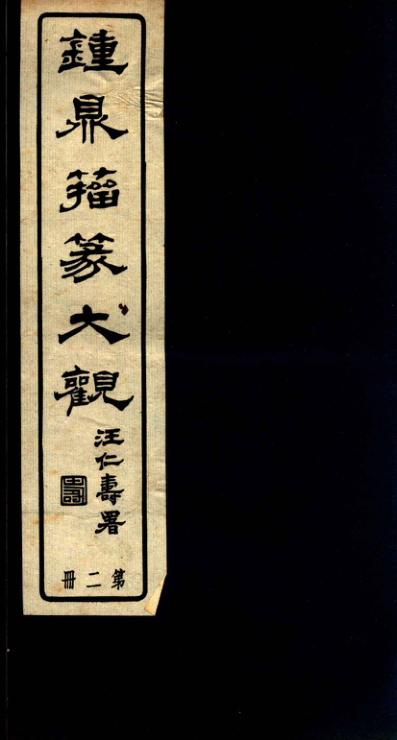 鍾鼎籀篆大觀
汪仁壽署
第二冊